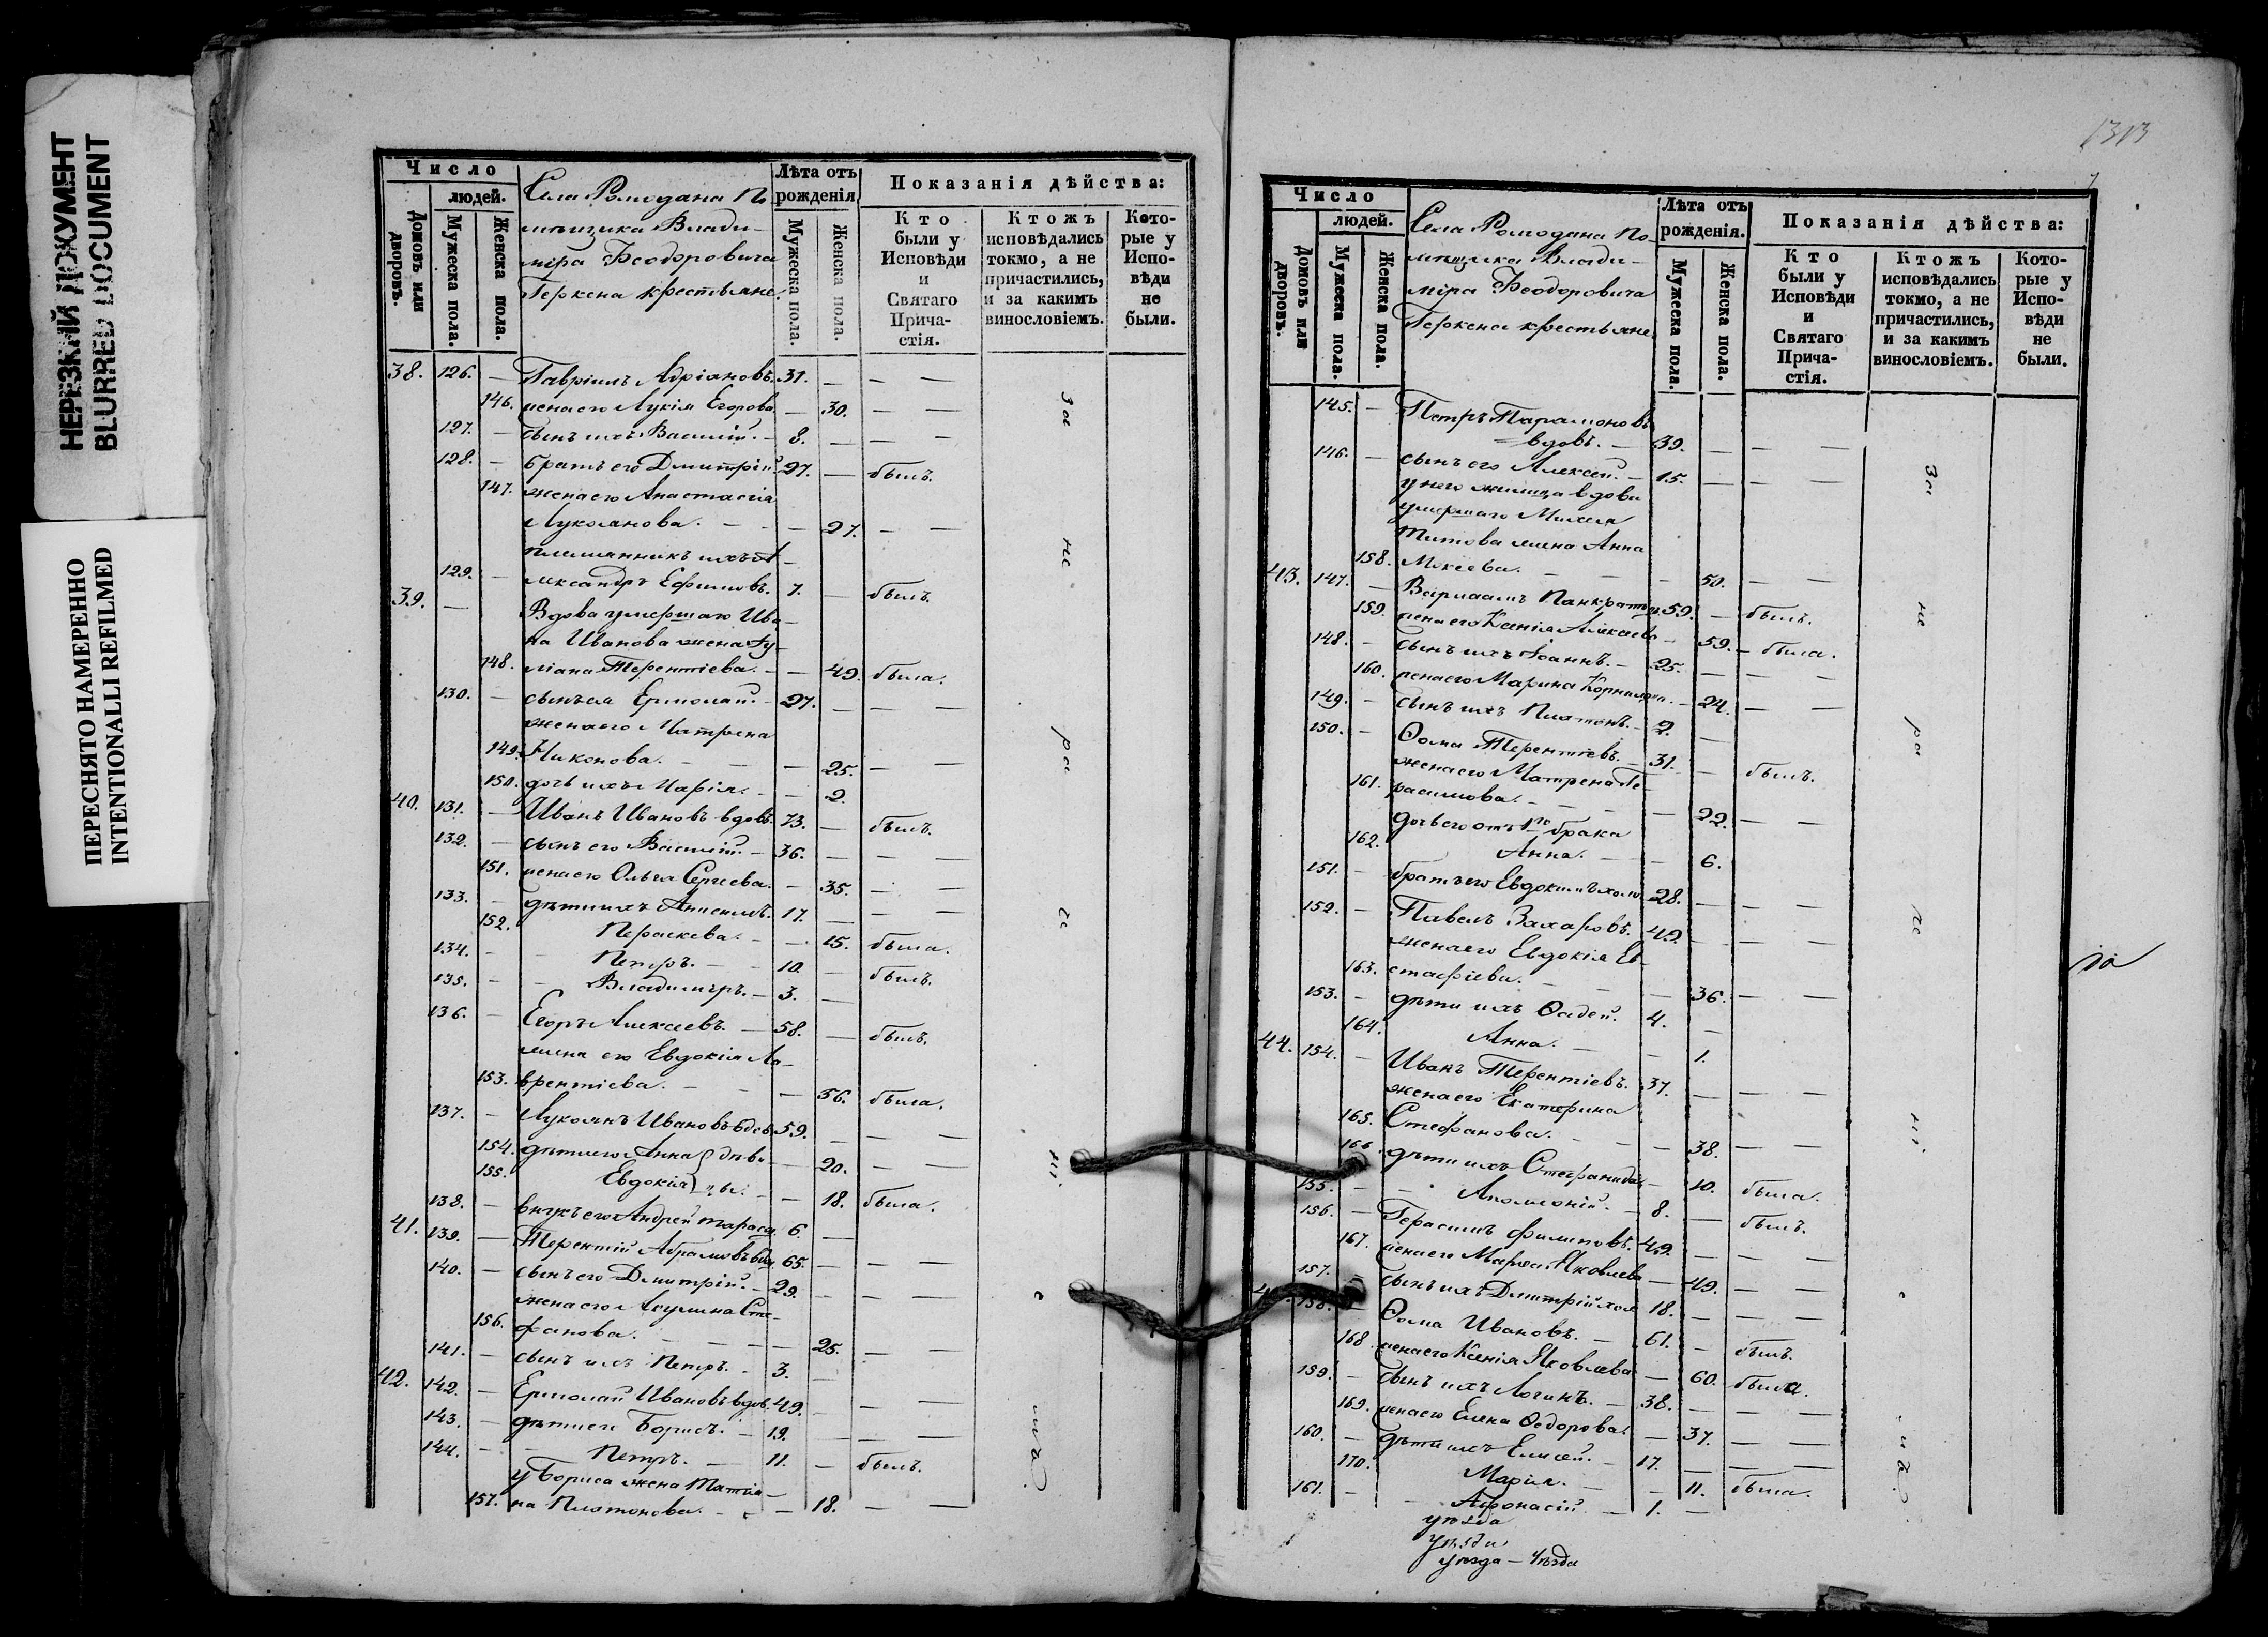 НЕРЕЗКИЙ ДОКУМЕНТ
BLURRED DOCUMENT
ПЕРЕСНЯТО НАМЕРЕННО
INTENTIONALLI REFILMED
Число
людей.
Домовъ или дворовъ.
Мужеска пола.
Женска пола.
Села Ромодана По
мѣщика Влади-
міра Ѳеодоровича
Геркена крестьяне.
Лѣта отъ рожденія
Мужеска пола.
Женска пола.
Показанія дѣйства:
Кто были у Исповѣди и Святаго Прича-стія.
Ктожъ исповѣдались токмо, а не причастились, и за какимъ винословіемъ.
Кото-рые у Испо-вѣди не были.
38. 126. — Гавріилъ Адріановъ. 31. — — —
146. жена его Лукія Егорова — 30. — —
127. — сынъ ихъ Василій. — 8. — — —
128. — братъ его Дмитрій. 27. — былъ.
147. жена его Анастасія
Лукіанова. — — — 27. — —
племянникъ ихъ А-
129. — лександръ Ефимовъ. 7. — былъ.
39. — Вдова умершаго Ива-
на Иванова жена Іу-
148. ліана Терентіева. — — 49. была.
130. — сынъ ея Ермолай. — 27. — — —
жена его Матрена
149. Никонова. — — — 25. — —
150. дочь ихъ Марія. — — 2.
40. 131. — Иванъ Ивановъ вдовъ. 73. — былъ.
132. — сынъ его Василій. — 36. — — —
151. жена его Ольга Сергеева. — 35. — —
133. — дѣти ихъ Анисимъ. 17. — — —
152. Пераскева. — — 15. была.
134. — — Петръ. — — 10. — былъ.
135. — — Владимиръ. — 3. —
136. — Егоръ Алексеевъ. — 58. — былъ.
жена его Евдокія Ла-
153. врентіева. — — — 56. была.
137. — Лукоянъ Ивановъ вдов. 59. — — —
154. дѣти его Анна } дѣви — 20. — —
155. Евдокія } цы. — — 18. была.
138. — внукъ его Андрей Тарасо. 6. —
41. 139. — Терентій Абрамовъ вдо. 65. — — —
140. — сынъ его Дмитрій. — 29. — — —
жена его Акулина Сте-
156. фанова. — — — 25. — —
141. — сынъ ихъ Петръ. — 3. —
42. 142. — Ермолай Ивановъ вдов. 49. — — —
143. — дѣти его Борисъ. — 19. — — —
144. — — Петръ. — 11. — былъ.
у Бориса жена Татія-
157. на Платонова. — — — 18. — —
за не ра че ні е мъ.
1313
Число
людей.
Домовъ или дворовъ.
Мужеска пола.
Женска пола.
Села Ромодана По-
мѣщика Влади-
міра Ѳеодоровича
Геркена крестьяне.
Лѣта отъ рожденія.
Мужеска пола.
Женска пола.
Показанія дѣйства:
Кто были у Исповѣди и Святаго Прича-стія.
Ктожъ исповѣдались токмо, а не причастились, и за какимъ винословіемъ.
Кото-рые у Испо-вѣди не были.
145. — Петръ Парамоновъ
= вдовъ. — 39. — — —
146. — сынъ его Алексей. — 15. — — —
у него жилица вдова
умершаго Михея
Титова жена Анна
158. Мокеева. — — — 50. — —
43. 147. — Варлаамъ Панкратьевъ 59. — былъ.
159. жена его Ксенія Алексеева — 59. — была.
148. — сынъ ихъ Іоаннъ. — 25. — — —
160. жена его Марина Корнилова. — 24. — —
149. — сынъ ихъ Платонъ. — 2. —
150. — Ѳома Терентіевъ. — 31. — былъ.
жена его Матрена Ге-
161. расимова. — — — 22. — —
дочь его отъ 1го брака
162. Анна. — — 6.
151. — братъ его Евдокимъ холо. 28. — — —
152. — Павелъ Захаровъ. 49. — — —
жена его Евдокія Ев-
163. стафіева. — — — 36. — —
153. — дѣти ихъ Ѳадей. 4. —
164. Анна. — — 1.
44. 154. — Иванъ Терентіевъ. 37. — — —
жена его Екатерина
165. Стефанова. — — — 38. — —
166. дѣти ихъ Стефанида — 10. была.
155. — — Аполлоній. — 8. — былъ.
156. — Герасимъ Филиповъ. 49. — — —
167. жена его Марѳа Яковлева — 49. — —
157. — сынъ ихъ Дмитрій хол. 18. — — —
158. — Ѳома Ивановъ. — 61. — былъ.
168. жена его Ксенія Яковлева — 60. была.
159. — сынъ ихъ Логинъ. — 38. — — —
169. жена его Елена Ѳедорова. — 37. — —
160. — дѣти ихъ Елисей. — 17. — — —
170. Марія. — — 11. была.
161. — — Афонасій. — 1. —
за не ра че ні е мъ.
уѣзда
уѣзды
уѣзда — Уѣзда